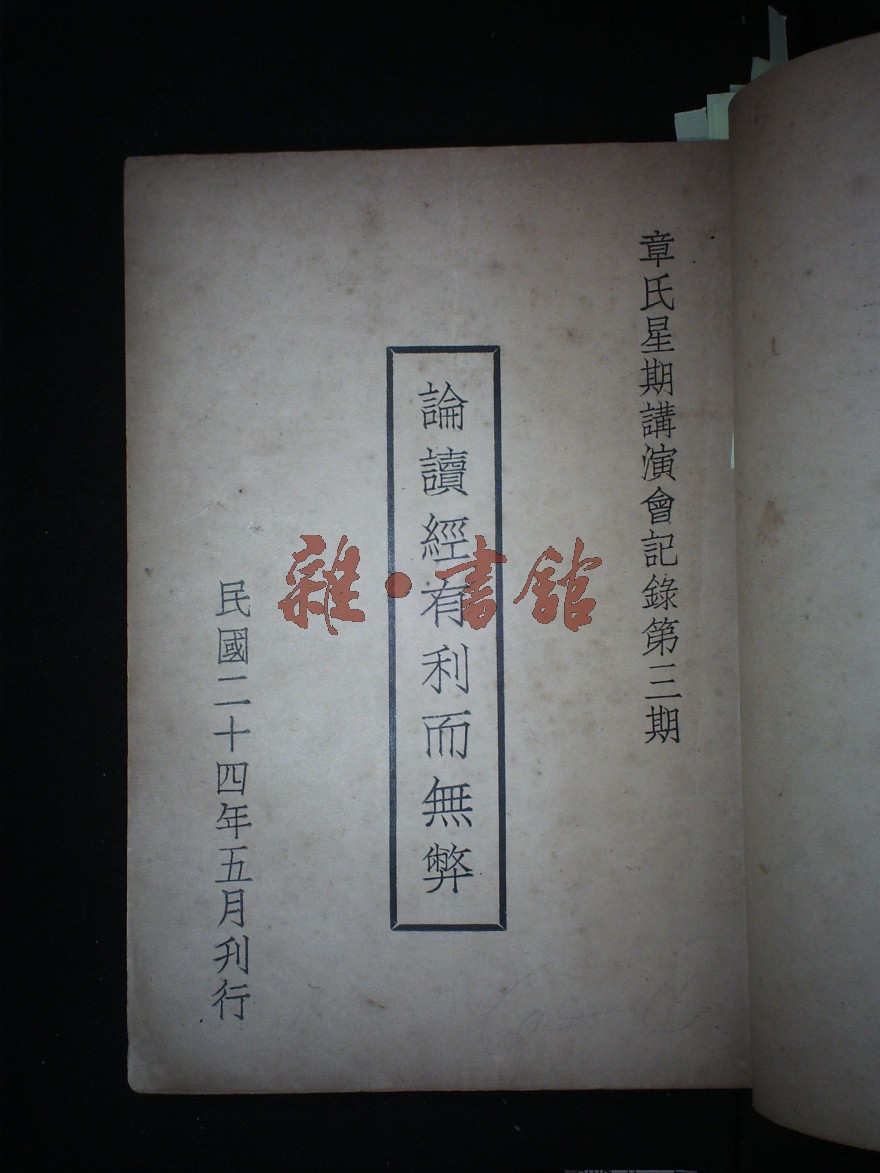 章氏星期講演會記錄第三期
論讀經有利而無弊
民國二十四年五月刋行
雜·書館